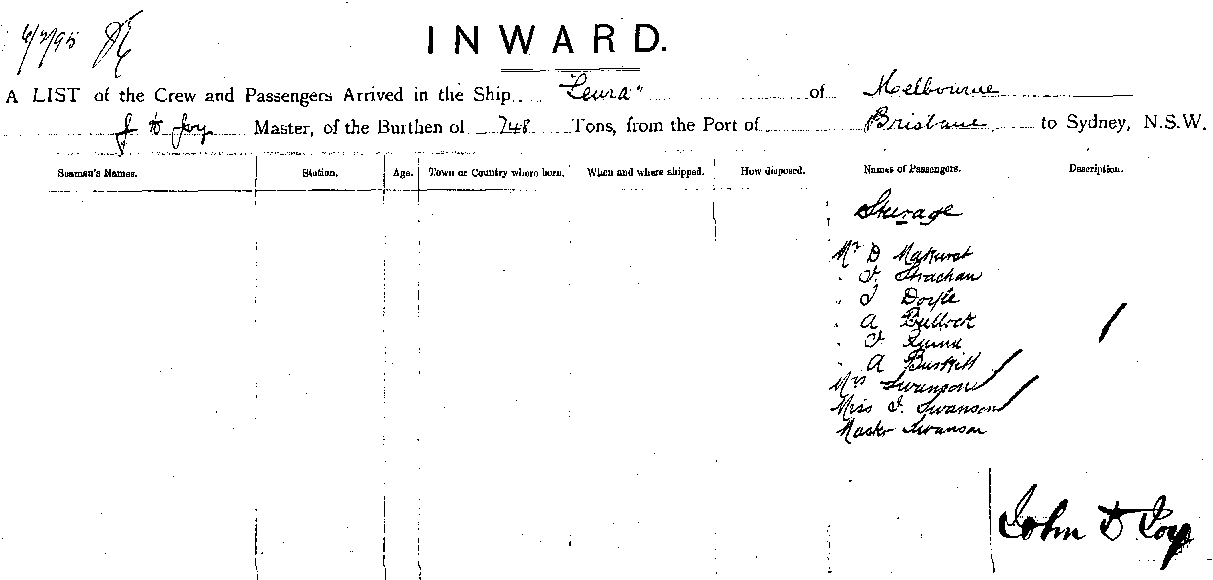 6/2/95
INWARD.
A LIST of the Crew and Passengers Arrived in the Ship "Leura" of Melbourne
J D Joy Master, of the Burthen of 748 Tons, from the Port of Brisbane to Sydney, N.S.W.
Seaman's Names. Station. Age. Town or Country where born. When and where shipped. How disposed. Names of Passengers. Description.
Steerage
Mr D
" J. Strachan
" J Doyle
" A Bullock
" J Quinn
" A
Mrs Swanson
Miss J. Swanson
Master Swanson
John D Joy